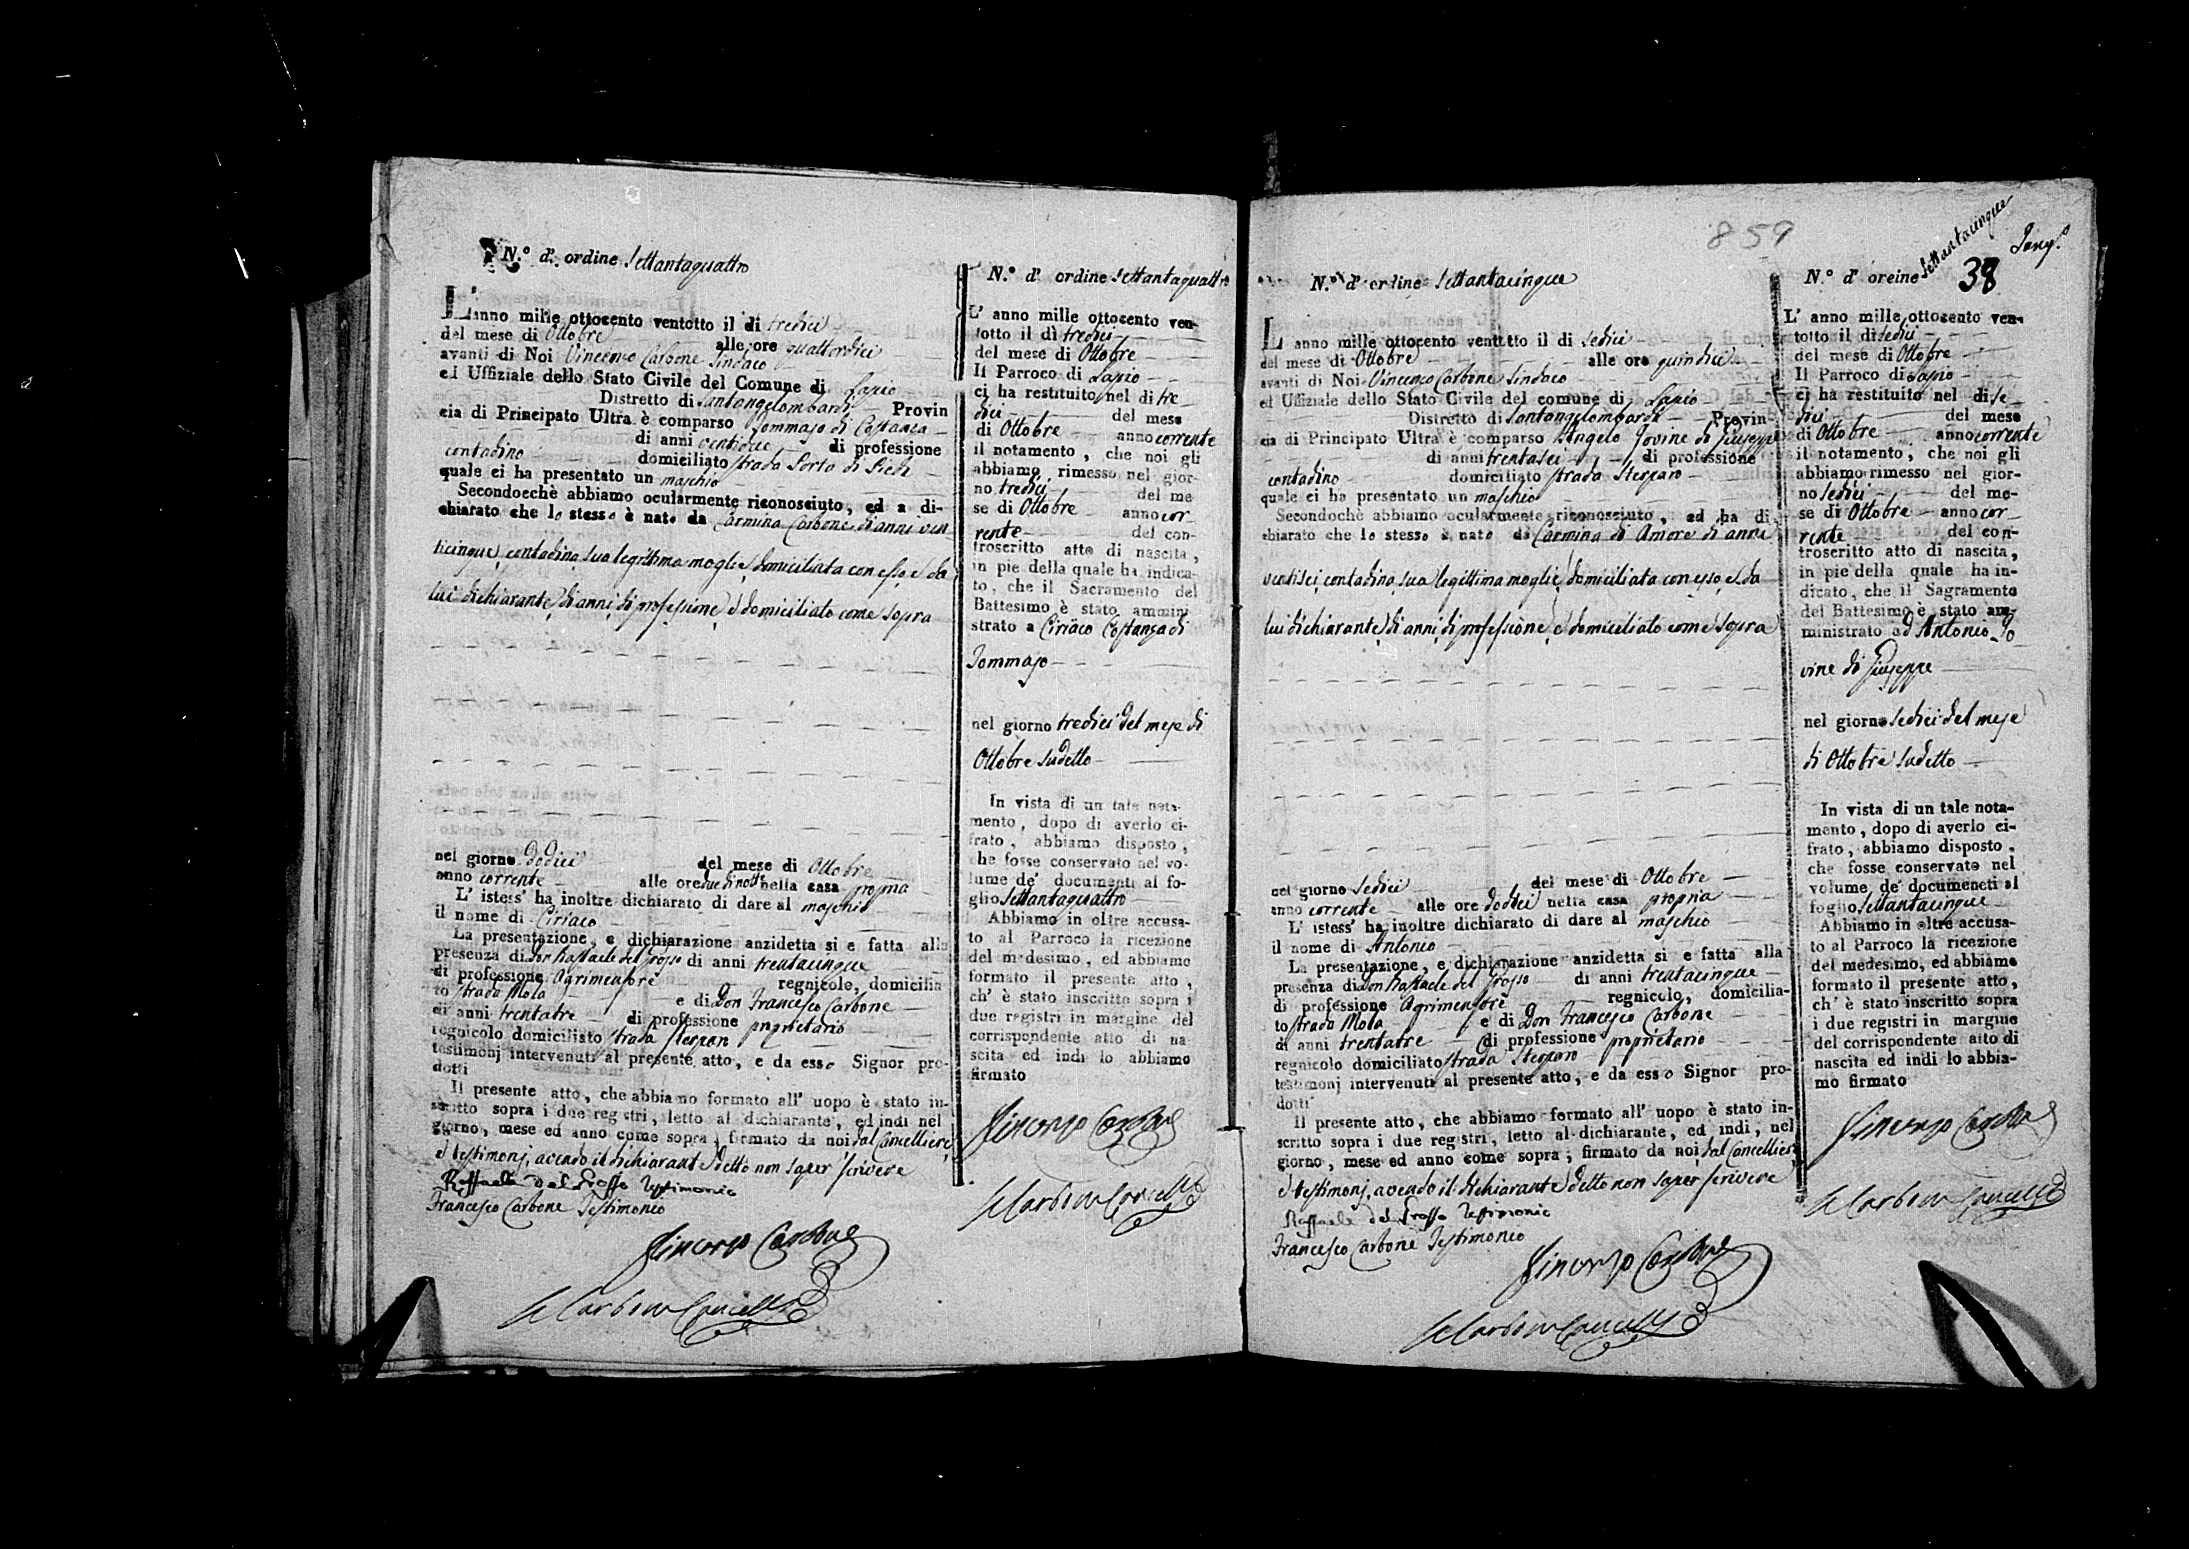 N.º d'. ordine Settantaquattro
L'anno mille ottocento ventotto il di tredici
del mese di Ottobre alle ore quattordici
avanti di Noi Vincenzo Carbone Sindaco
ed Uffiziale dello Stato Civile del Comune di Lapio
Distretto di Santangelombardi Provin
cia di Principato Ultra è comparso Tommaso di Costanza
di anni ventidue di professione
contadino domiciliato strada Porto di Piedi
quale ci ha presentato un maschio
Secondocchè abbiamo ocularmente riconosciuto, ed a di-
chiarato che lo stesso è nato da Carmina Carbone di anni ven
ticinque, contadina sua legittima moglie, domiciliata con esso e da
lui dichiarante, di anni, di professione, e domiciliato come sopra
nel giorno dodici del mese di Ottobre
anno corrente alle ore due di notte nella casa propria
L' istess' ha inoltre dichiarato di dare al maschio
il nome di Ciriaco
La presentazione, e dichiarazione anzidetta si e fatta alla
presenza di Don Raffaele del Grosso di anni trentacinque
di professione Agrimensore regnicolo, domicilia
to strada Mola e di Don Francesco Carbone
di anni trentatre di professione proprietario
regnicolo domiciliato strada Stenpan
testimonj intervenuti al presente atto, e da esso Signor pro-
dotti
Il presente atto, che abbiamo formato all' uopo è stato in-
scritto sopra i due registri, letto al dichiarante, ed indi nel
giorno, mese ed anno come sopra, firmato da noi, dal Cancelliere,
e testimonj, avendo il dichiarante detto non saper scrivere
Raffaele del Grosso Testimonio
Francesco Carbone Testimonio
Vincenzo Carbone
Carbone Cancellre
N.º d' ordine Settantaquattro
L' anno mille ottocento ven-
totto il di tredici
del mese di Ottobre
Il Parroco di Lapio
ci ha restituito nel di tre
dici del mese
di Ottobre anno corrente
il notamento, che noi gli
abbiamo rimesso nel gior-
no tredici del me
se di Ottobre anno cor
rente del con-
troscritto atto di nascita,
in pie della quale ha indica-
to, che il Sacramento del
Battesimo è stato ammini
strato a Ciriaco Costanza di
Tommaso
nel giorno tredici del mese di
Ottobre sudetto
In vista di un tale nota-
mento, dopo di averlo ci-
frato, abbiamo disposto,
che fosse conservato nel vo-
lume de' documenti al fo-
glio Settantaquattro
Abbiamo in oltre accusa-
to al Parroco la ricezione
del medesimo, ed abbiamo
formato il presente atto,
ch' è stato inscritto sopra i
due registri in margine del
corrispondente atto di na
scita ed indi lo abbiamo
firmato
Vincenzo Carbone
Carbone Cancellre
859
N.º d' ordine Settantacinque
L' anno mille ottocento ventotto il di sedici
del mese di Ottobre alle ore quindici
avanti di Noi Vincenzo Carbone Sindaco
ed Uffiziale dello Stato Civile del comune di Lapio
Distretto di Santangelombardi Provin-
cia di Principato Ultra è comparso Angelo Jovine di Giuseppe
di anni trentasei di professione
contadino domiciliato strada Stenpan
quale ci ha presentato un maschio
Secondochè abbiamo ocularmente riconosciuto, ed ha di
chiarato che lo stesso è nato da Carmina di Amore di anni
ventisei, contadina, sua legittima moglie, domiciliata con esso, e da
lui dichiarante, di anni, di professione, e domiciliato come sopra
nel giorno Sedici del mese di Ottobre
anno corrente alle ore dodici nella casa propria
L' istess' ha inoltre dichiarato di dare al maschio
il nome di Antonio
La presentazione, e dichiarazione anzidetta si e fatta alla
presenza di Don Raffaele del Grosso di anni trentacinque
di professione Agrimensore regnicolo, domicilia-
to strada Mola e di Don Francesco Carbone
di anni trentatre di professione proprietario
regnicolo domiciliato strada Stenpan
testimonj intervenuti al presente atto, e da esso Signor pro-
dotti
Il presente atto, che abbiamo formato all' uopo è stato in-
scritto sopra i due registri, letto al dichiarante, ed indi, nel
giorno, mese ed anno come sopra, firmato da noi, dal Cancelliere,
e testimonj, avendo il dichiarante detto non saper scrivere
Raffaele del Grosso Testimonio
Francesco Carbone Testimonio
Vincenzo Carbone
Carbone Cancellre
N.º d' oreine Settantacinque
38
L' anno mille ottocento ven-
totto il di sedici
del mese di Ottobre
Il Parroco di Lapio
ci ha restituito nel di se
dici del mese
di Ottobre anno corrente
il notamento, che noi gli
abbiamo rimesso nel gior-
no sedici del me-
se di Ottobre anno cor
rente del con-
troscritto atto di nascita,
in pie della quale ha in-
dicato, che il Sagramento
del Battesimo è stato am-
ministrato ad Antonio Jo
vine di Giuseppe
nel giorno sedici del mese
di Ottobre sudetto
In vista di un tale nota-
mento, dopo di averlo ci-
frato, abbiamo disposto,
che fosse conservato nel
volume de' documeneti al
foglio Settantacinque
Abbiamo in oltre accusa-
to al Parroco la ricezione
del medesimo, ed abbiamo
formato il presente atto,
ch' è stato inscritto sopra
i due registri in margine
del corrispondente atto di
nascita ed indi lo abbia-
mo firmato
Vincenzo Carbone
Carbone Cancellre